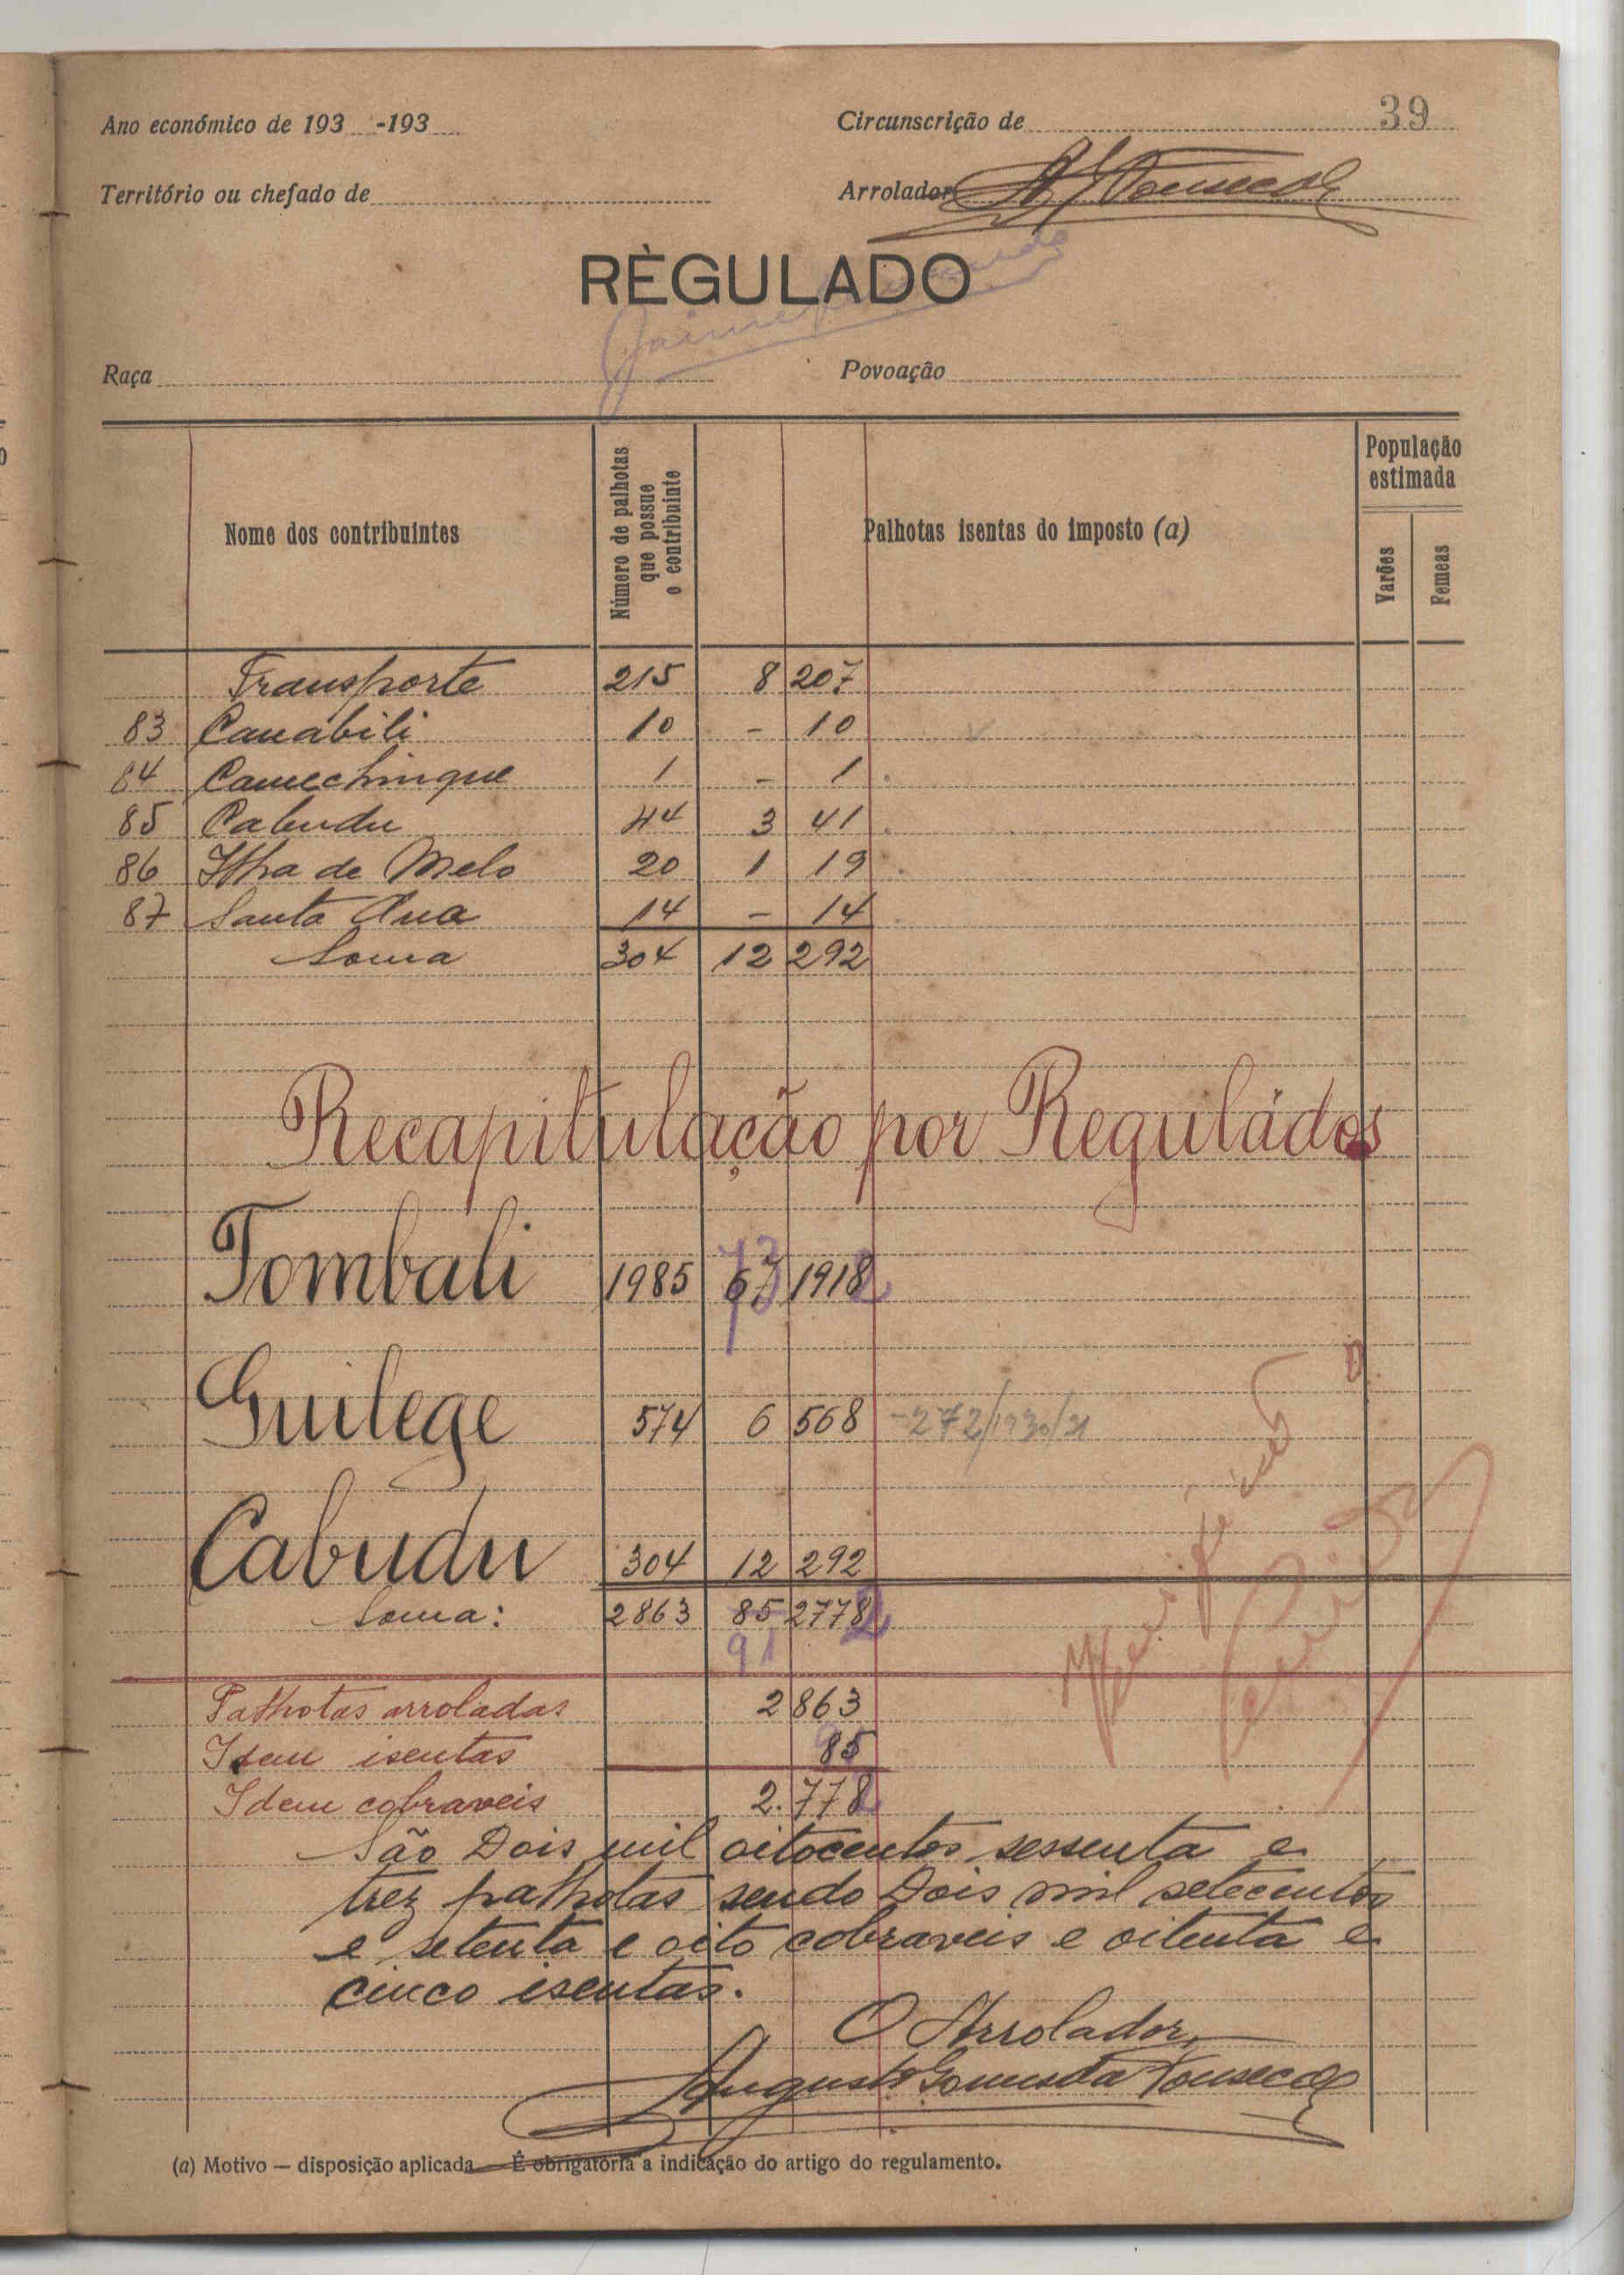 39
Ano económico de 193 -193
Circunscrição de
Território ou chefado de
Arrolador A G Fonseca
REGULADO
Raça
Povoação
Nome dos contribuintes
Número de palhotas que possue o contribuinte
Palhotas isentas do imposto (a)
População estimada
Varões
Femeas
Transporte 215 8 207
83 Cauabili 10 - 10
84 Camechinque 1 - 1
85 Cabudu 44 3 41
86 Ilha de Melo 20 1 19
87 Santa Ana 14 - 14
Soma 304 12 292
Recapitulação por Reguládos
Tombali 1985 67 73 1918 2
Guilege 574 6 568 -272/1930/31
Cabudu 304 12 292
Soma: 2863 85 2778 2
91
Palhotas arroladas 2863
Idem isentas 85
Idem cobraveis 2.778
São Dois mil oitocentos sessenta e
trez palhotas sendo Dois mil setecentos
e setenta e oito cobraveis e oitenta e
cinco isentas.
O Arrolador,
Augusto Gomes da Fonseca
(a) Motivo — disposição aplicada — É obrigatória a indicação do artigo do regulamento.